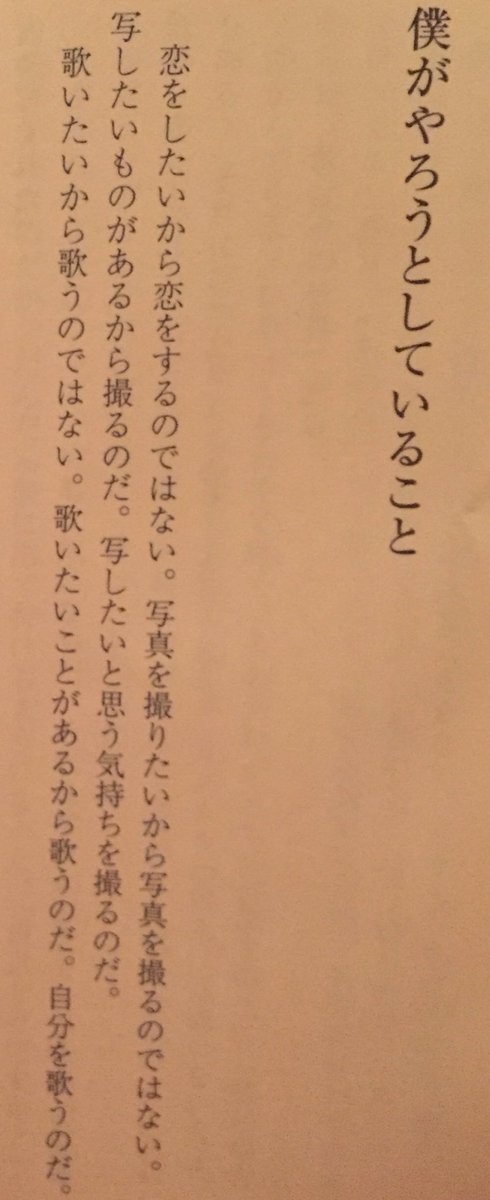 僕がやろうとしていること
恋をしたいから恋をするのではない。写真を撮りたいから写真を撮るのではない。
写したいものがあるから撮るのだ。写したいと思う気持ちを撮るのだ。
歌いたいから歌うのではない。歌いたいことがあるから歌うのだ。自分を歌うのだ。